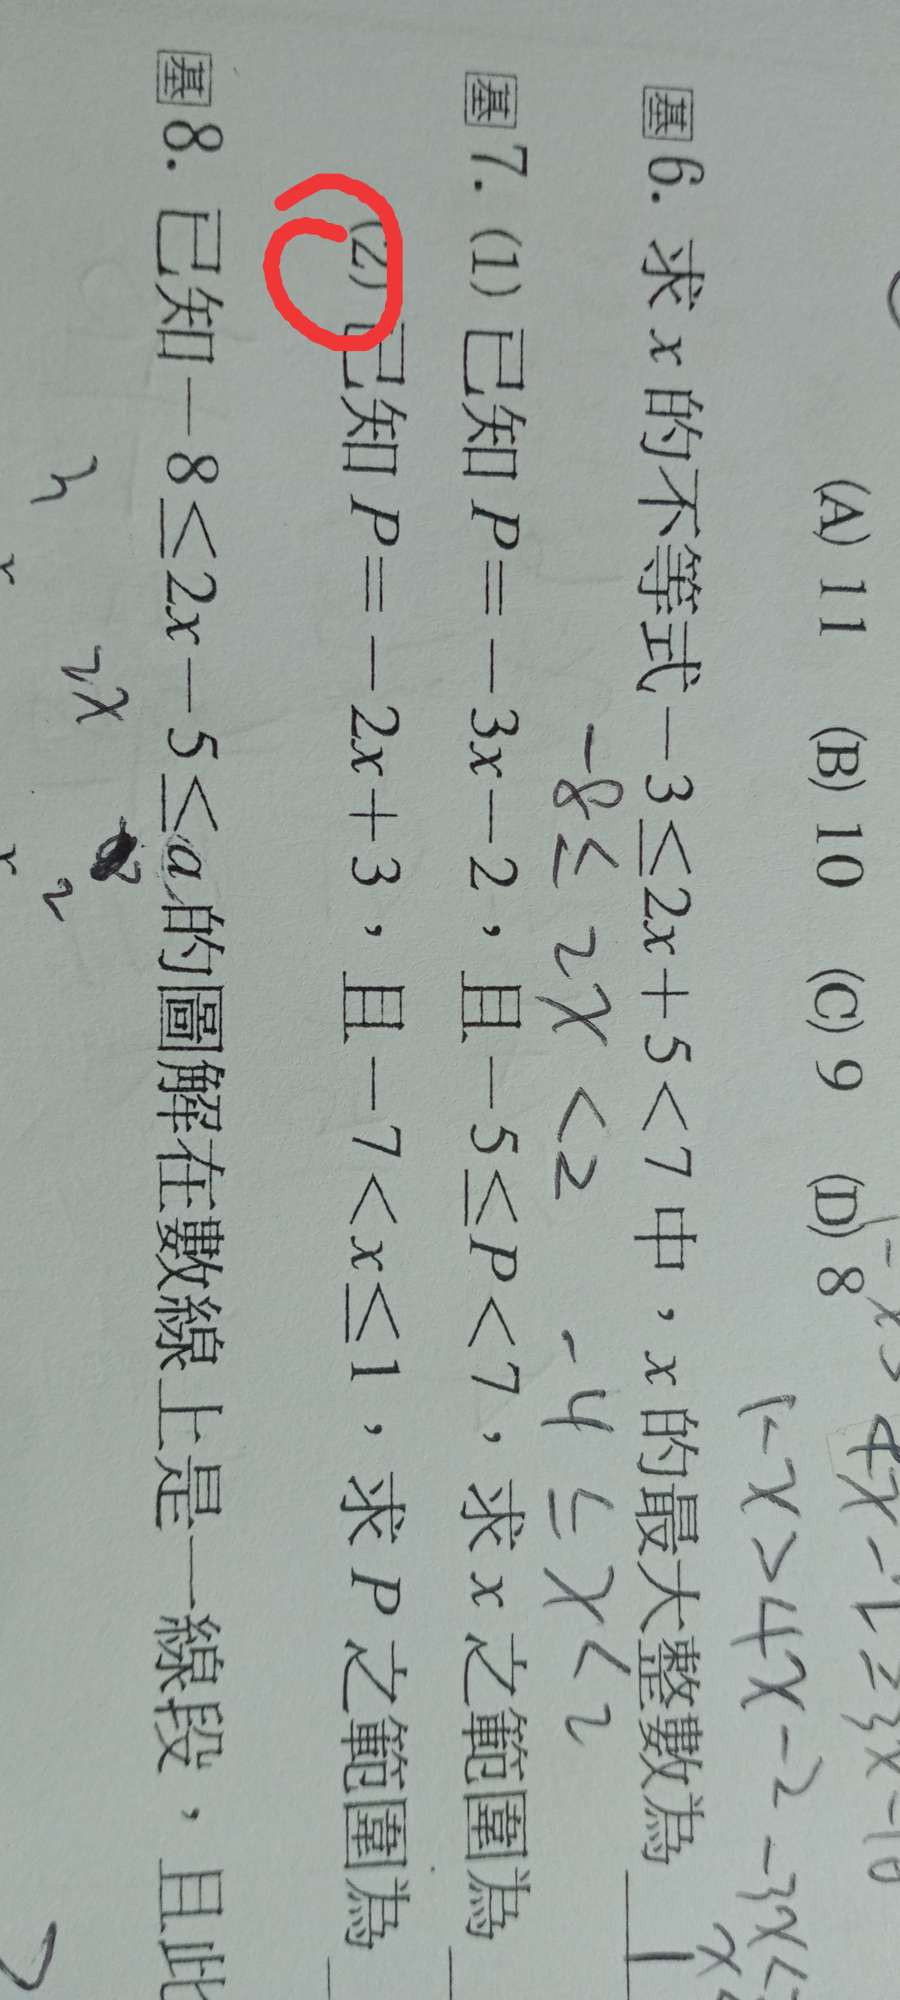 (A) 11 (B) 10 (C) 9 (D) 8
1-x>4x-2
基 6. 求 x 的不等式-3≤2x+5<7 中，x 的最大整數為 1
-8≤2x<2 -4≤x<2
基 7. (1) 已知 P=-3x-2，且-5≤P<7，求 x 之範圍為
(2) 已知 P=-2x+3，且-7<x≤1，求 P 之範圍為
基 8. 已知-8≤2x-5≤a的圖解在數線上是一線段，且此
2x
3 2